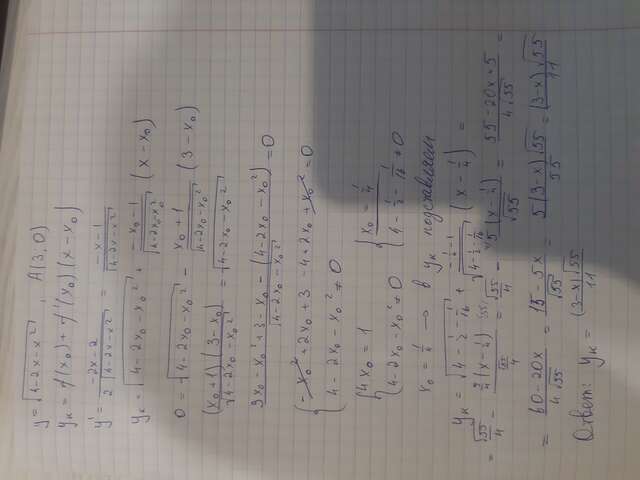 y = √(4-2x-x²) , A(3,0)
yк = f(x₀) + f'(x₀)(x-x₀)
y' = (-2x-2)/(2√(4-2x-x²)) = (-x-1)/√(4-2x-x²)
yк = √(4-2x₀-x₀²) + (-x₀-1)/√(4-2x₀-x₀²) (x-x₀)
0 = √(4-2x₀-x₀²) - (x₀+1)/√(4-2x₀-x₀²) (3-x₀)
(x₀+1)(3-x₀)/√(4-2x₀-x₀²) = √(4-2x₀-x₀²)
(3x₀-x₀²+3-x₀-(4-2x₀-x₀²))/√(4-2x₀-x₀²) = 0
{ -x₀²+2x₀+3-4+2x₀+x₀² = 0
4-2x₀-x₀² ≠ 0
{ 4x₀ = 1 { x₀ = 1/4
4-2x₀-x₀² ≠ 0 4-1/2-1/16 ≠ 0
x₀ = 1/4 → в yк подставляем
yк = √(4-1/2-1/16) + (-1/4-1)/√(4-1/2-1/16) (x-1/4) =
= √55/4 - 5/4(x-1/4)/(√55/4) = √55/4 - 5(x-1/4)/√55 = (55-20x+5)/(4√55) =
= (60-20x)/(4√55) = (15-5x)/√55 = 5(3-x)√55/55 = (3-x)√55/11
Ответ: yк = (3-x)√55/11